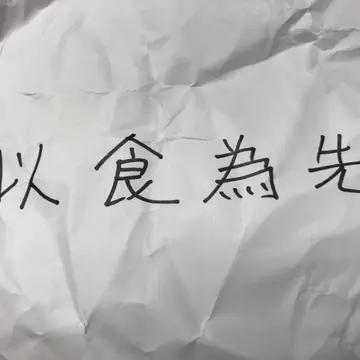 以食為先